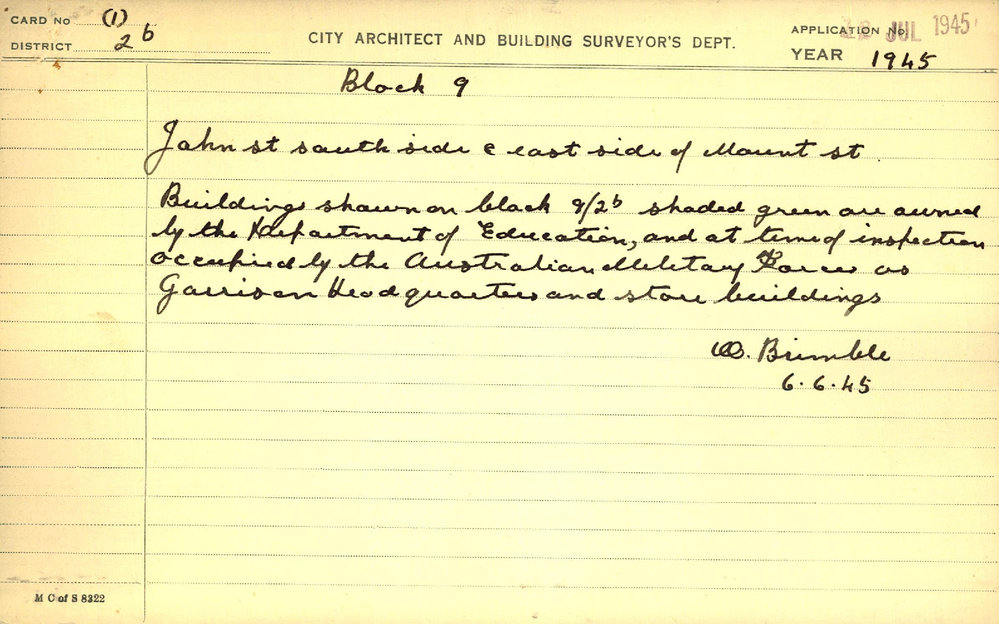 CARD No (1)
DISTRICT 2b
CITY ARCHITECT AND BUILDING SURVEYOR'S DEPT.
APPLICATION No. JUL 1945
YEAR 1945
Block 9
John st south side & east side of Mount st
Buildings shown on block 9/2b shaded green are owned
by the Department of Education, and at time of inspection
occupied by the Australian Military Forces as
Garrison Headquarters and store buildings
Brimble
6.6.45
M C of S 8322